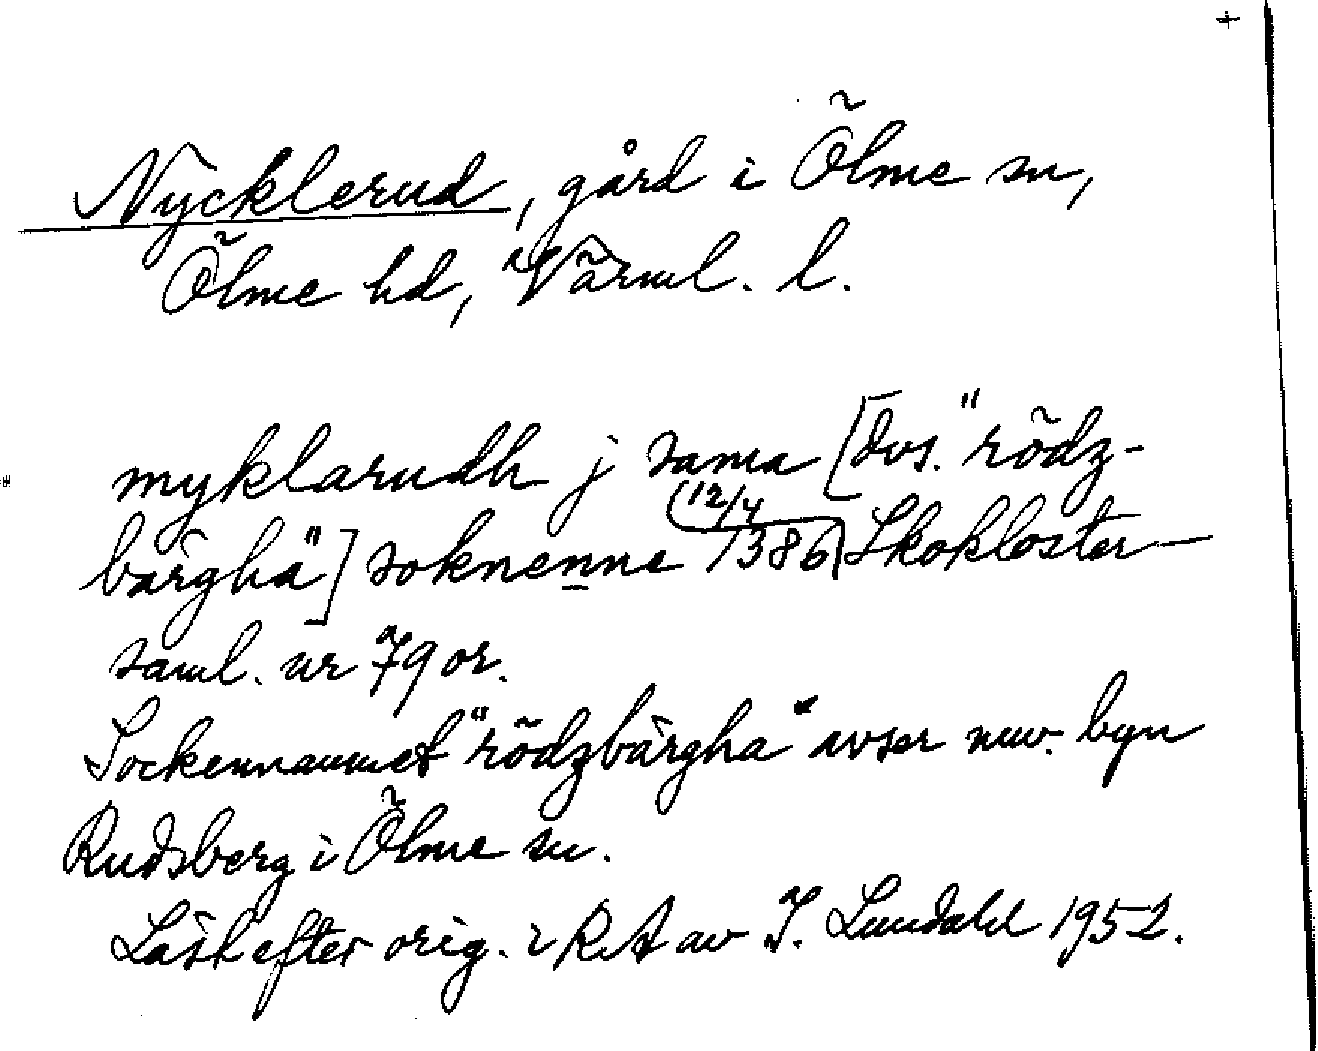 +
Nycklerud, gård i Ölme sn,
Ölme hd, Värml. l.
myklarudh j sama [dvs. "rödz-
bärgha"] soknenne (12/4 1386) Skokloster-
saml. nr 79 or.
Sockennamnet "rödzbärgha" avser nuv. byn
Rudsberg i Ölme sn.
Läst efter orig. i RA av I. Lundahl 1952.